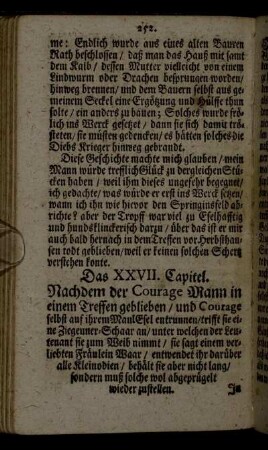 252.
me: Endlich wurde aus eines alten Bauren
Rath beschlossen / daß man das Hauß mit samt
dem Kalb / dessen Mutter vielleicht von einem
Lindwurm oder Drachen besprungen worden /
hinweg brennen / und dem Bauern selbst aus ge-
meinem Seckel eine Ergötzung und Hülffe thun
solte / ein anders zu bauen; Solches wurde frö-
lich ins Werck gesetzt / dann sie sich damit trö-
steten / sie müsten gedencken / es hätten solches die
Diebs Krieger hinweg gebrandt.
Diese Geschichte machte mich glauben / mein
Mann würde trefflich Glück zu dergleichen Stü-
cken haben / weil ihm dieses ungefehr begegnet /
ich gedachte / was würde er erst ins Werck setzen /
wann ich ihn wie hievor den Springinsfeld ab-
richte? aber der Tropff war viel zu Eselhafftig
und hundsklinckerisch darzu / über das ist er mir
auch bald hernach in dem Treffen vor Herbsthau-
sen todt geblieben / weil er keinen solchen Schertz
verstehen konte.
Das XXVII. Capitel.
Nachdem der Courage Mann in
einem Treffen geblieben / und Courage
selbst auf ihrem Maul Esel entrunnen / trifft sie ei-
ne Ziegeuner-Schaar an / unter welchen der Leu-
tenant sie zum Weib nimmt / sie sagt einem ver-
liebten Fräulein Waar / entwendet ihr darüber
alle Kleinodien / behält sie aber nicht lang /
sondern muß solche wol abgeprügelt
wieder zustellen.